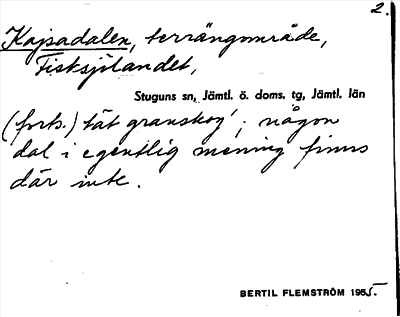 2.
Kajsadalen, terrängområde,
Fisksjölandet,
Stuguns sn, Jämtl. ö. doms. tg, Jämtl. län
(forts.) tät granskog'; någon
dal i egentlig mening finns
där inte.
BERTIL FLEMSTRÖM 1955.